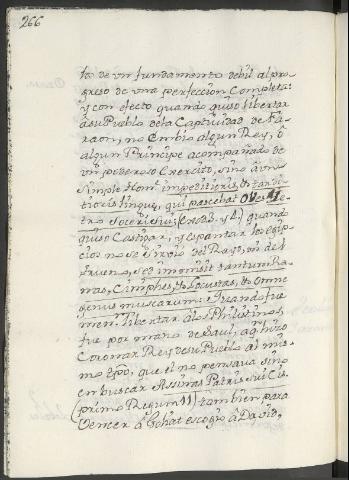 266
to de vn fundamento debil al pro
greso de vna perfeccion Completa:
y con efecto quando quiso libertar
à su Pueblo de la Captiuidad de Fa
raon, no Embio algun Rey, ò
algun Principe acompañado de
un poderoso Exercito, sino à vn
Simple Homᵉ impeditioris, & tar
tioris linguæ, qui pascebat Oves Je
tro Soceri Sui (Exod. 3. y 4) quando
quiso Castigar, y Espantar los egip
cios no se sirvio del Rayo, ni del
trueno, sed immisit tantum Ra
nas, Cimphes, & Locustas, & omne
genus muscarum: Quando fue
menʳ libertar a los Philistinos,
fue por mano de Saul, aqⁿ hizo
Coronar Rey de su Pueblo al mis
mo tpõ, que el no pensava sino
en buscar Asinas Patris Sui Cis,
(primo Regum 11) tambien para
Vencer à Golhat escogio à David,